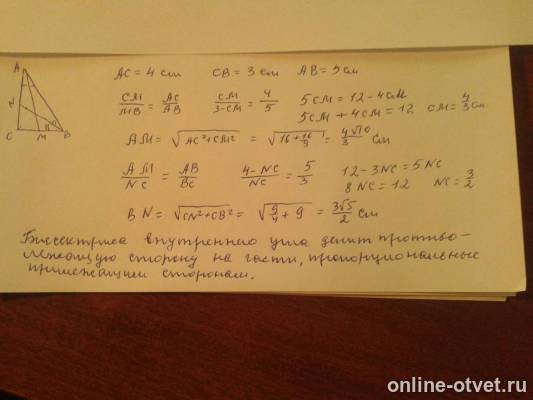 A
N
C M B
AC = 4 см CB = 3 см AB = 5 см
CM/MB = AC/AB CM/3-CM = 4/5 5CM = 12 - 4CM
5CM + 4CM = 12 CM = 4/3 см.
AM = √AC²+CM² = √16 + 16/9 = 4√10/3 см
AM/NC = AB/BC 4-NC/NC = 5/3 12 - 3NC = 5NC
8NC = 12 NC = 3/2
BN = √CN²+CB² = √9/4 + 9 = 3√5/2 см
Биссектриса внутреннего угла делит противо-
лежащую сторону на части, пропорциональные
прилежащим сторонам.
online-otvet.ru